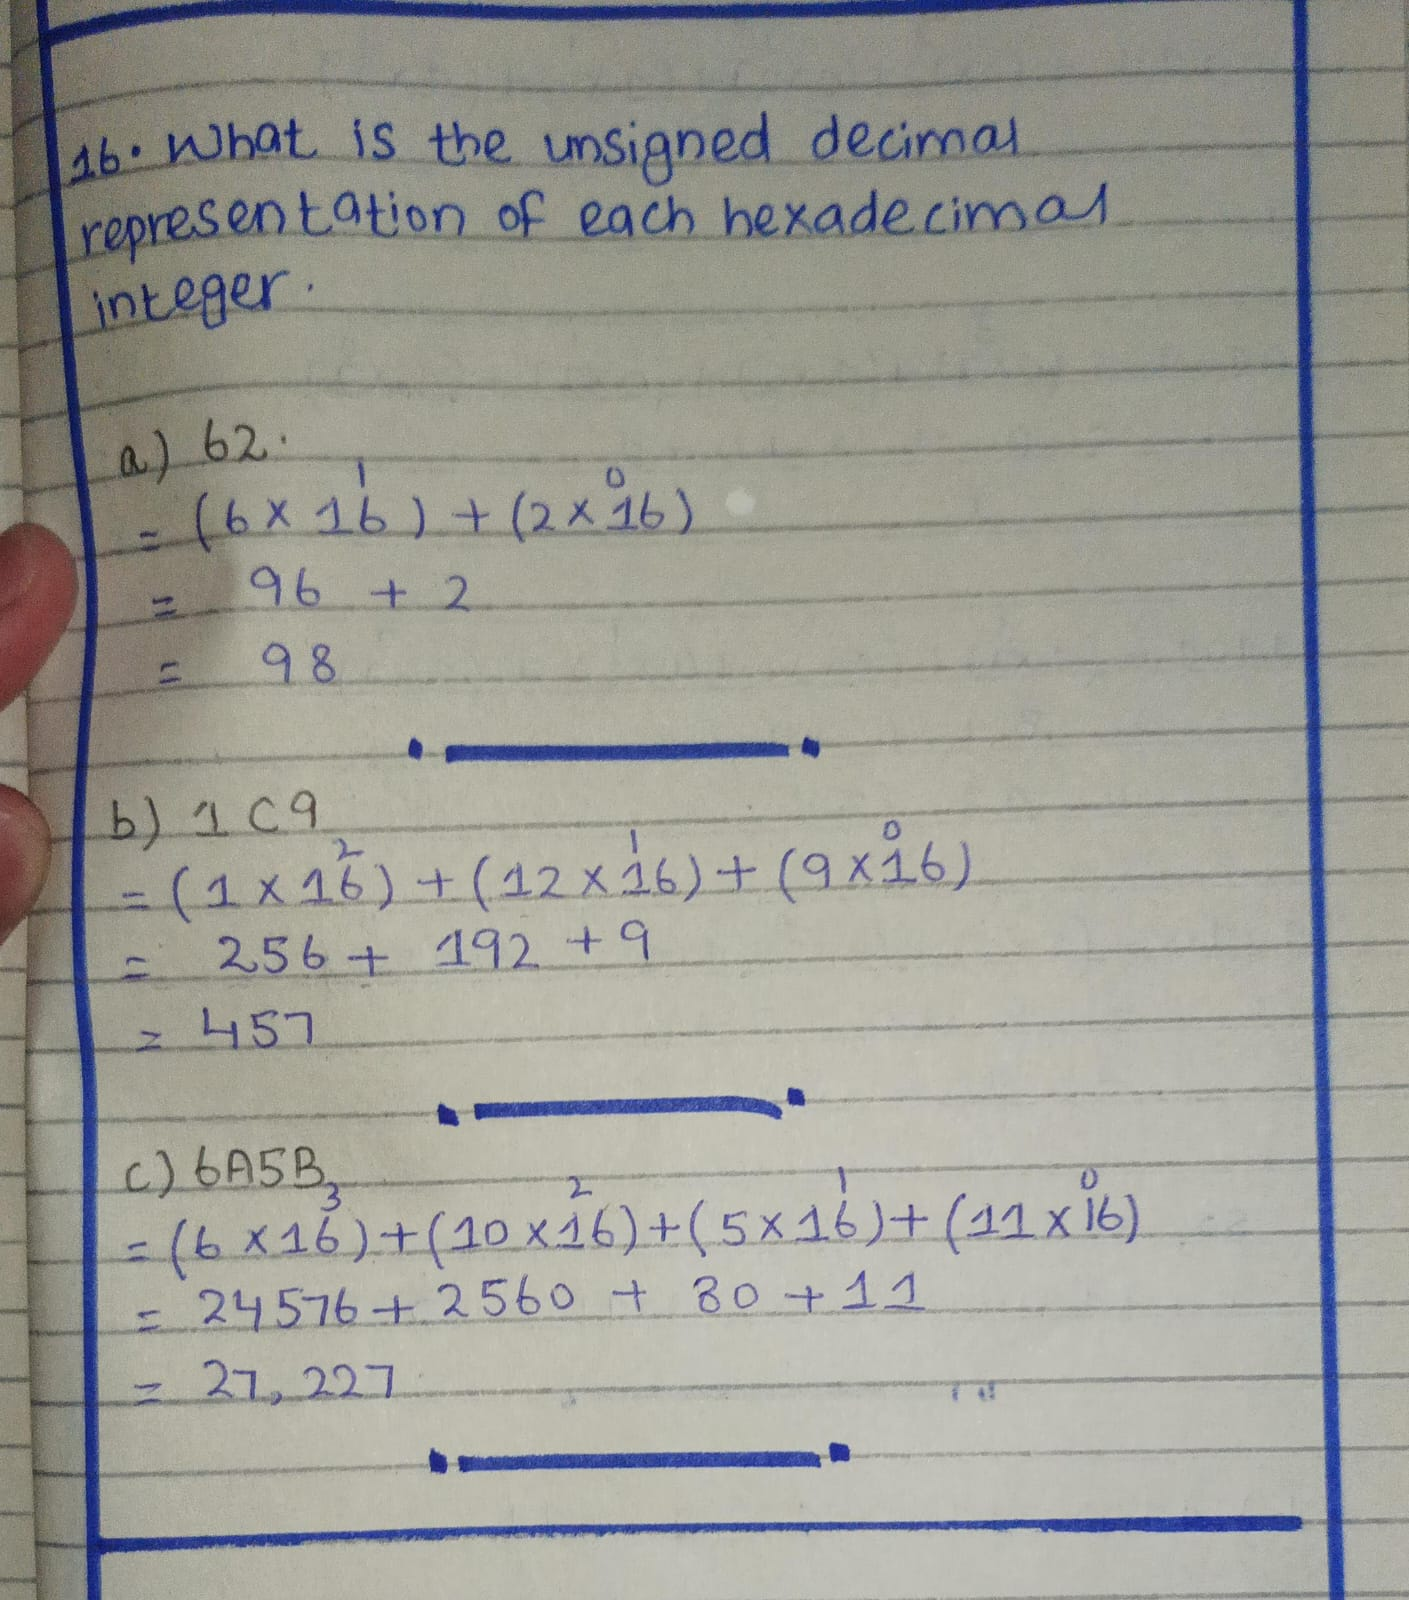 16. What is the unsigned decimal
representation of each hexadecimal
integer.
a) 62.
= (6 x 16¹) + (2 x 16⁰)
= 96 + 2
= 98
b) 1C9
= (1 x 16²) + (12 x 16¹) + (9 x 16⁰)
= 256 + 192 + 9
= 457
c) 6A5B
= (6 x 16³) + (10 x 16²) + (5 x 16¹) + (11 x 16⁰)
= 24576 + 2560 + 80 + 11
= 27,227